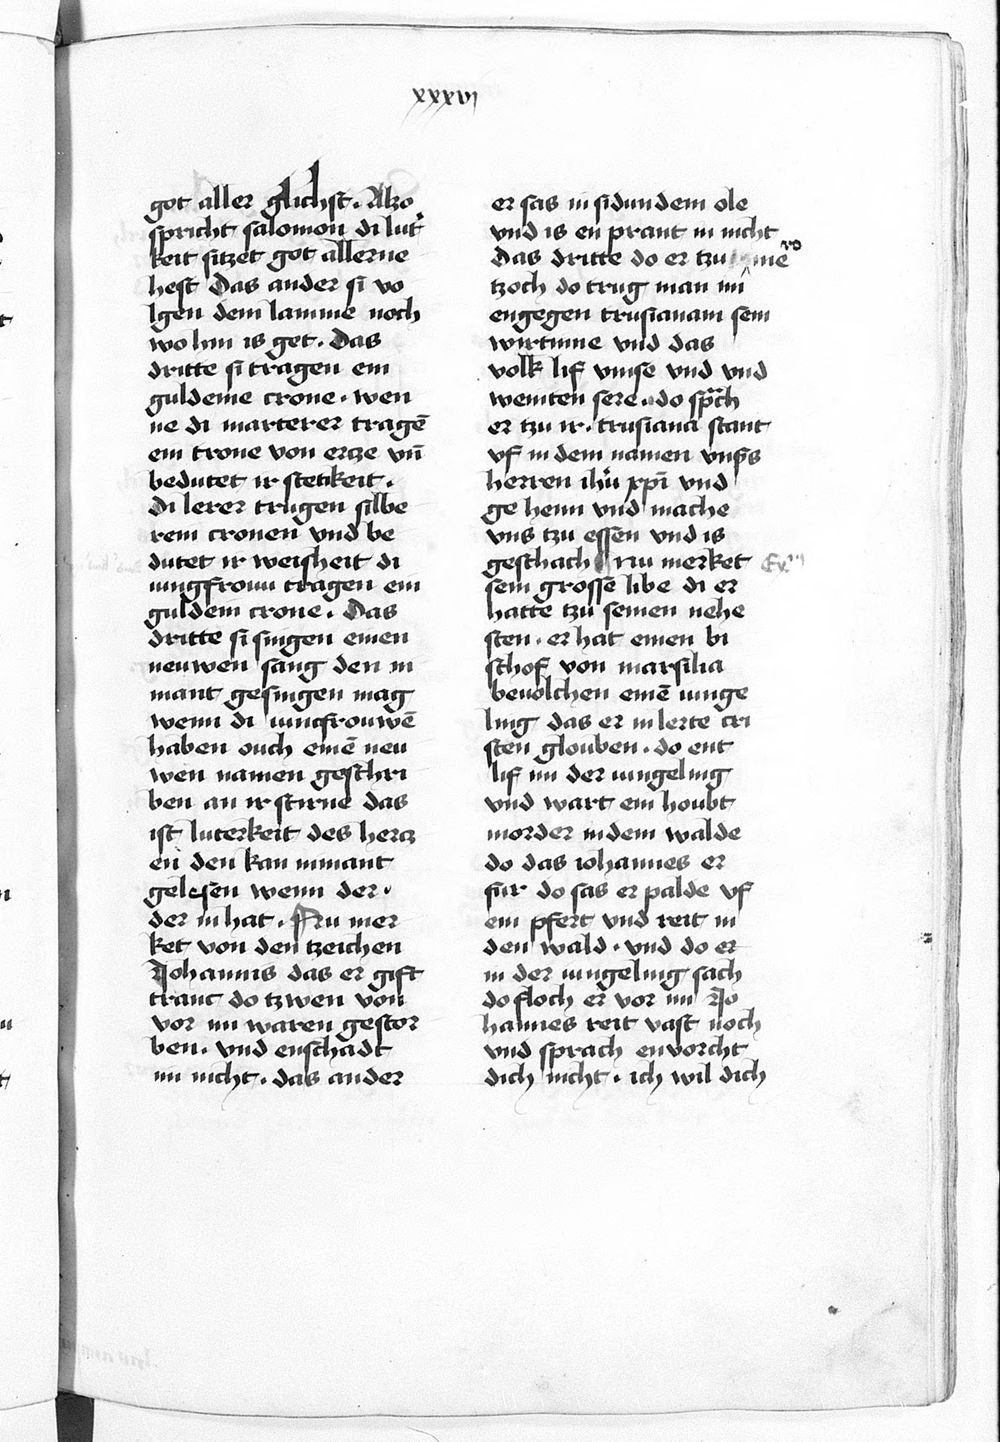 xxxvi
got aller glichst. Also
spricht salomon di lut̾
keit sitzet got allerne
hest Das ander si vo
lgen dem lamme noch
wo hin is get. Das
dritte si tragen ein
guldeine crone. wen
ne di marterer tragē
ein crone von ercze vn̄
bedutet ir stetikeit.
Di lerer trugen silbe
rein cronen vnd be
dutet ir weisheit di
iungfrouu tragen ein
guldein crone. Das
dritte si singen einen
neuwen sang den ni
mant gesingen mag
wenn di iungfrouwē
haben ouch einē neu
wen namen geschri
ben an ir stirne das
ist luterkeit des hercz
en den kan nimant
gelesen wenn der.
der in hat. Nu mer
ket von den tzeichen
Johannis das er gift
tranc do tzwen von
vor im waren gestor
ben. vnd enschadt
im nicht. das ander
er sas in sidundem ole
vnd is en prant in nicht
Das dritte do er tzu me
ro
tzoch do trug man im
engegen trusianam sein
wirtinne vnd das
volk lif vmse vnd vnd
weinten sere. do sprach
er tzu ir. trusiana stant
vf in dem namen vnsis
herren ihū xp̄i vnd
ge heim vnd mache
vns tzu essen vnd is
geschach Nu merket
Ex.m
sein grosse libe di er
hatte tzu seinen nehe
sten. er hat einen bi
schof von marsilia
beuolchen einē iunge
ling das er in lerte cri
sten glouben. do ent
lif im der iungeling
vnd wart ein houbt
morder in dem walde
do das iohannes er
fur do sas er palde vf
ein pfert vnd reit in
den wald. vnd do er
in der iungeling sach
do floch er vor im Jo
hannes reit vast noch
vnd sprach envorcht
dich nicht. ich wil dich